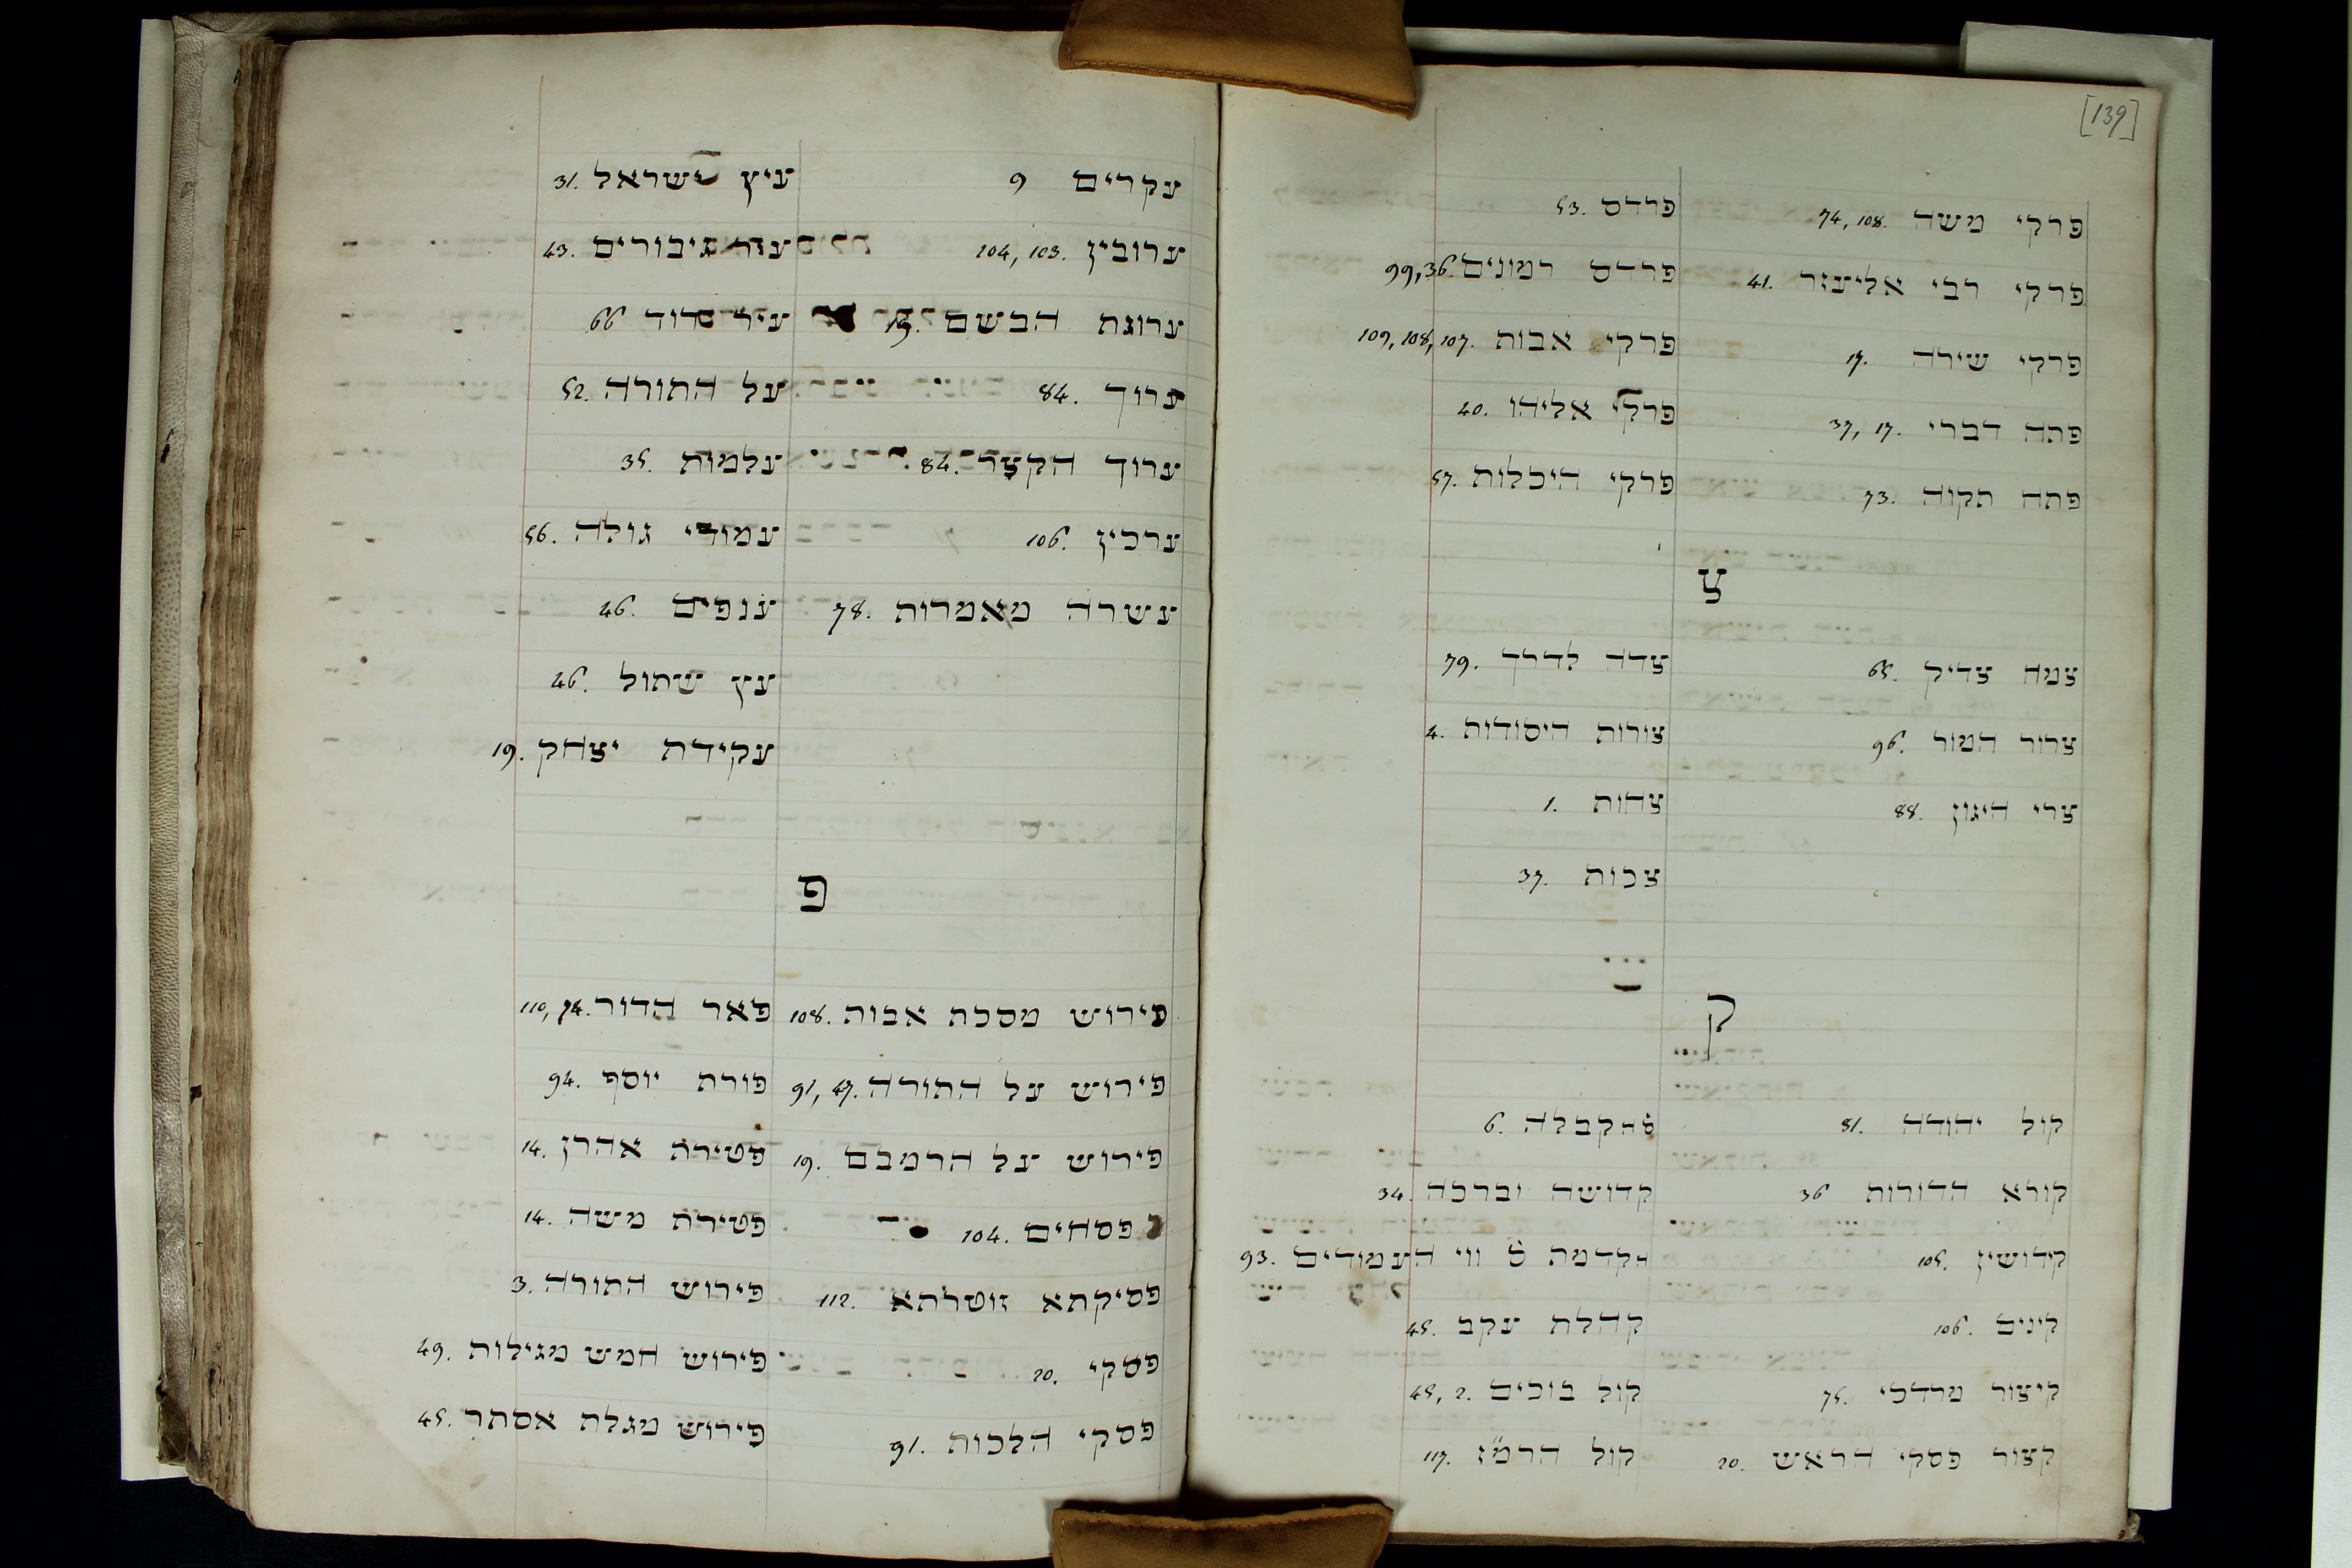 עין ישראל 31.
גיבורים 43.
עיר דוד 66
על התורה 52.
עלמות 35.
עמודי גולה 56.
ענפים 46.
עץ שתול 46.
עקידת יצחק 19.
עקרים 9
ערובין 104, 103.
ערוגת הבשם
ערוך 84.
ערוך הקצר 84.
ערכין 106.
עשרה מאמרות 78.
פ
פאר הדור 110, 74.
פורת יוסף 94.
פטירת אהרן 14.
פטירת משה 14.
פירוש התורה 3.
פירוש חמש מגילות 49.
פירוש מגלת אסתר 45.
פירוש מסכת אבות 108.
פירוש על התורה 91, 47.
פירוש על הרמבם 19.
פסחים 104.
פסיקתא זוטרתא 112.
פסקי 20.
פסקי הלכות 91.
[139]
פרדס 53.
פרדס רמונים 99, 36.
פרקי אבות 109, 108, 107.
פרקי אליהו 40.
פרקי היכלות 57.
פרקי משה 74, 108.
פרקי רבי אליעזר 41.
פרקי שירה 17.
פתח דברי 37, 17.
פתח תקוה 73.
צ
צדה לדרך 79.
צורות היסודות 4.
צחות 1.
צכות 37.
צמח צדיק 65.
צרור המור 96.
צרי היגון 88.
ק
הקבלה 6.
קדושה וברכה 34.
הקדמת ס' ווי העמודים 93.
קהלת עקב 45.
קול בוכים 45, 2.
קול הרמ"ז 117.
קול יהודה 81.
קורא הדורות 36
קידושין 105.
קינים 106.
קיצור מרדכי 75.
קצור פסקי הראש 20.